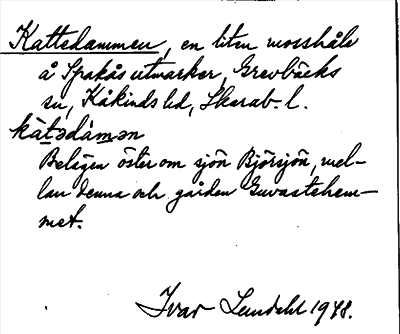 Kattedammen, en liten mosshåla
å Spakås utmarker, Grevbäcks
sn, Kåkinds hd, Skarab. l.
kàtədámən
Belägen öster om sjön Björsjön, mel-
lan denna och gården Envastehem-
met.
Ivar Lundahl 1948.